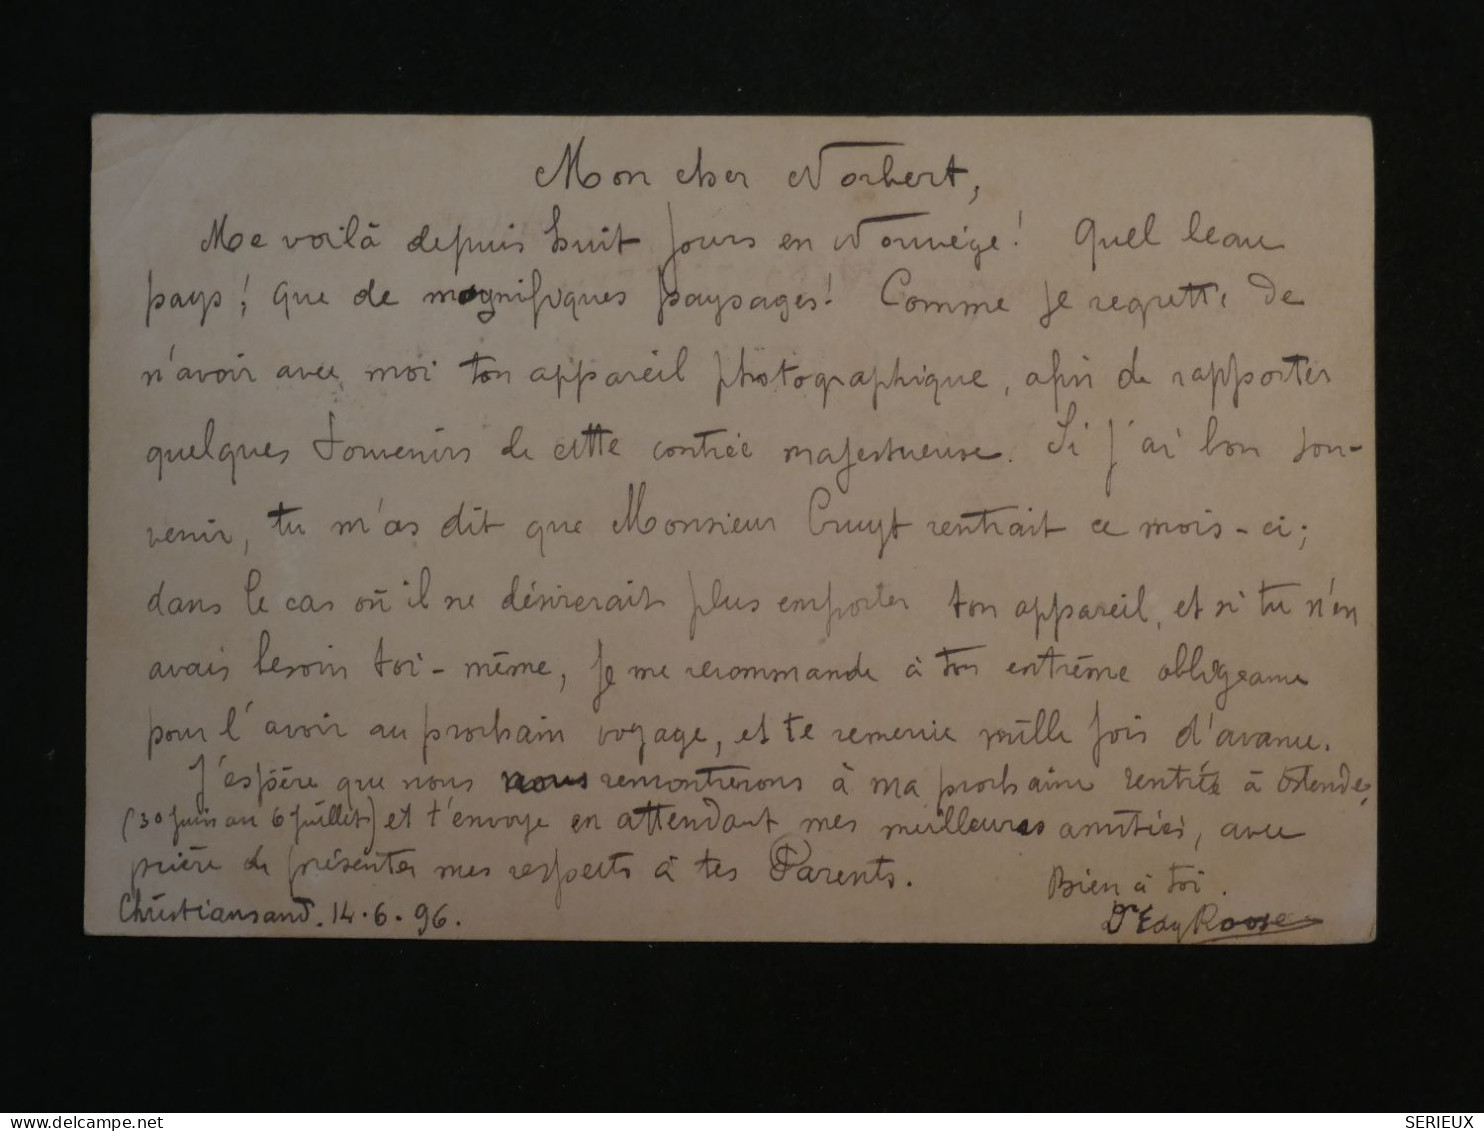 Mon cher Norbert,
Me voilà depuis huit jours en Norwège! Quel beau
pays! Que de magnifiques paysages! Comme je regrette de
n'avoir avec moi ton appareil photographique, afin de rapporter
quelques souvenirs de cette contrée majestueuse. Si j'ai bon sou-
venir, tu m'as dit que Monsieur Cruyt rentrait ce mois-ci;
dans le cas où il ne désirerait plus emporter ton appareil, et si tu n'en
avais besoin toi-même, je me recommande à ton extrême obligeance
pour l'avoir au prochain voyage, et te remercie mille fois d'avance.
J'espère que nous nous rencontrerons à ma prochaine rentrée à Ostende,
(30 juin au 6 juillet) et t'envoye en attendant mes meilleures amitiés, avec
prière de présenter mes respects à tes Parents.
Bien à toi.
Christiansand. 14.6.96.
Dr Edg Roose
delcampe.net
SERIEUX